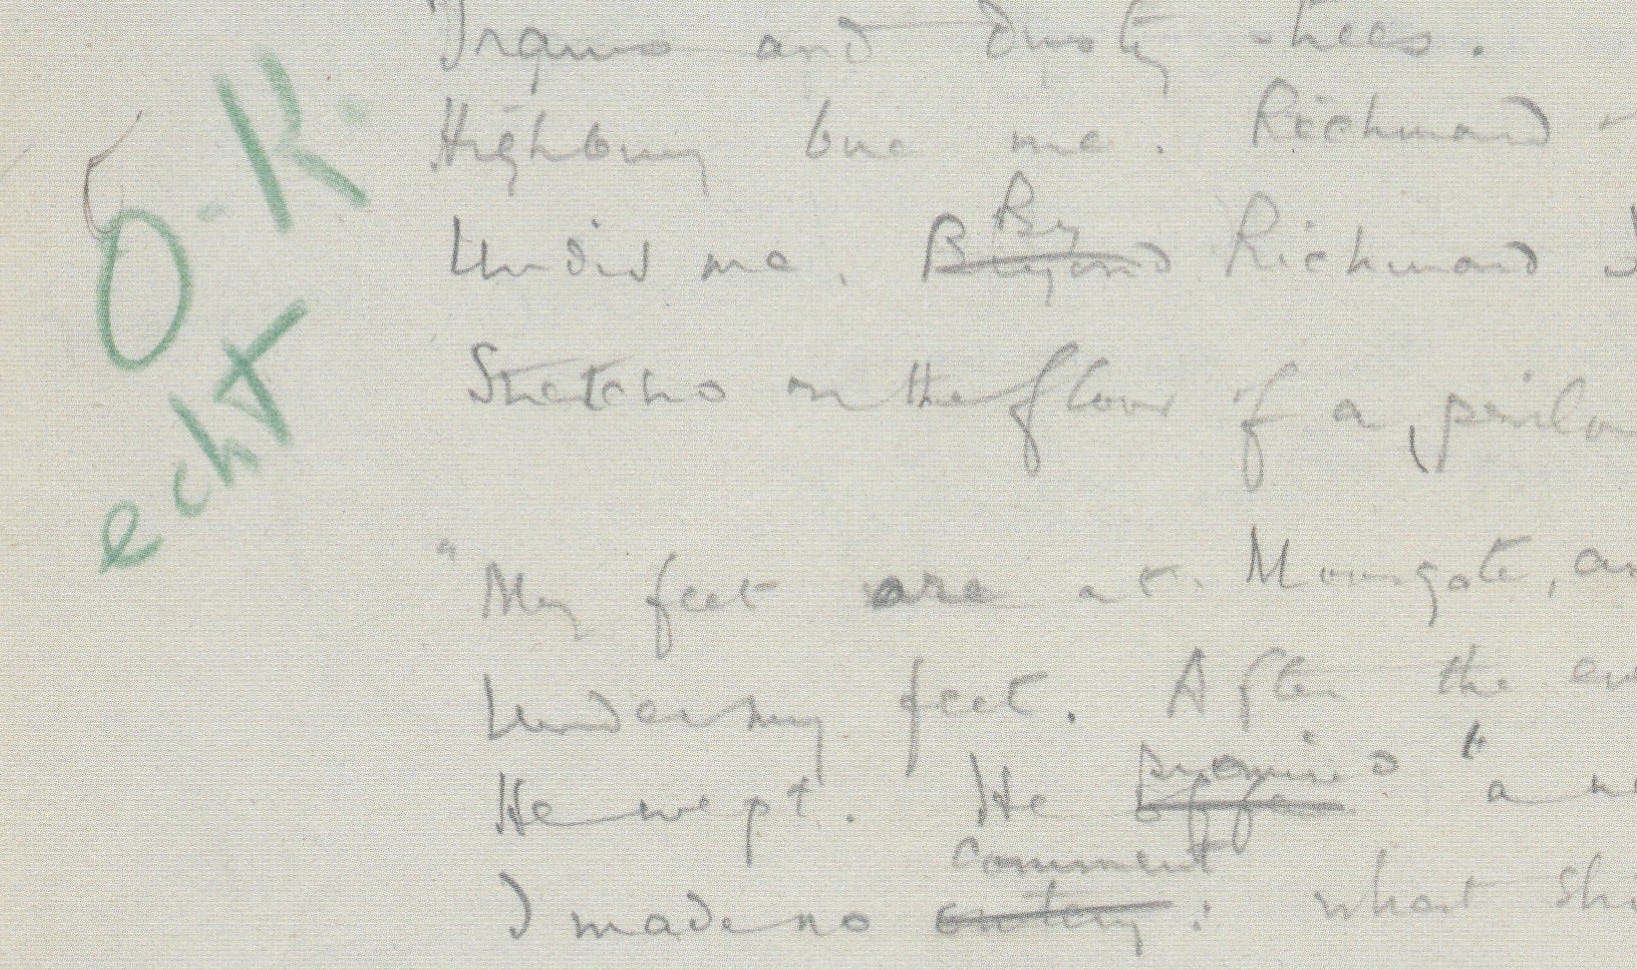 O.K.
echt
"Trams and dusty trees.
Highbury bore me. Richmond
By
Undid me. Beyond Richmond I
Stretched on the floor of a perilo
"My feet are at Moorgate, an
Under my feet. After the eve
promised
He wept. He "a ne
comment
I made no outcry: what sh